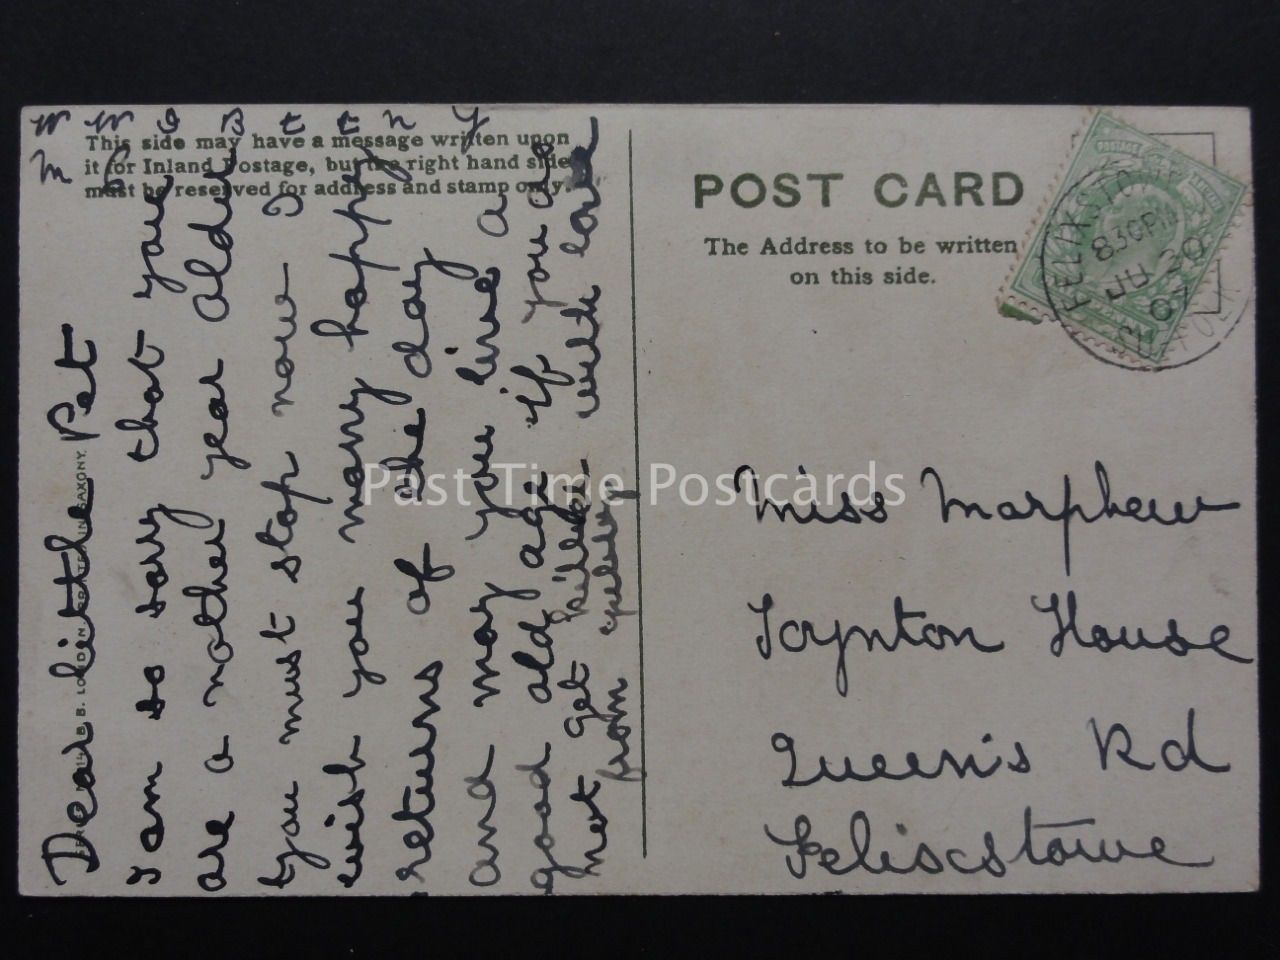 W W I B t t n y
This side may have a message written upon
it for Inland Postage, but the right hand side
must be reserved for address and stamp only.
Dear little Pet
I am so sory that you
are a nother year alder
you must stop now I
wish you many happy
returns of the day
and may you live a
good ald age if you do
not get killed with love
from
B. B. LONDON
PRINTED IN SAXONY.
POST CARD
The Address to be written
on this side.
FELIXSTOWE
830PM
JU 20
07
SUFFOLK
POSTAGE
Miss Morphew
Toynton House
Queen's Rd
Felixstowe
Past Time Postcards